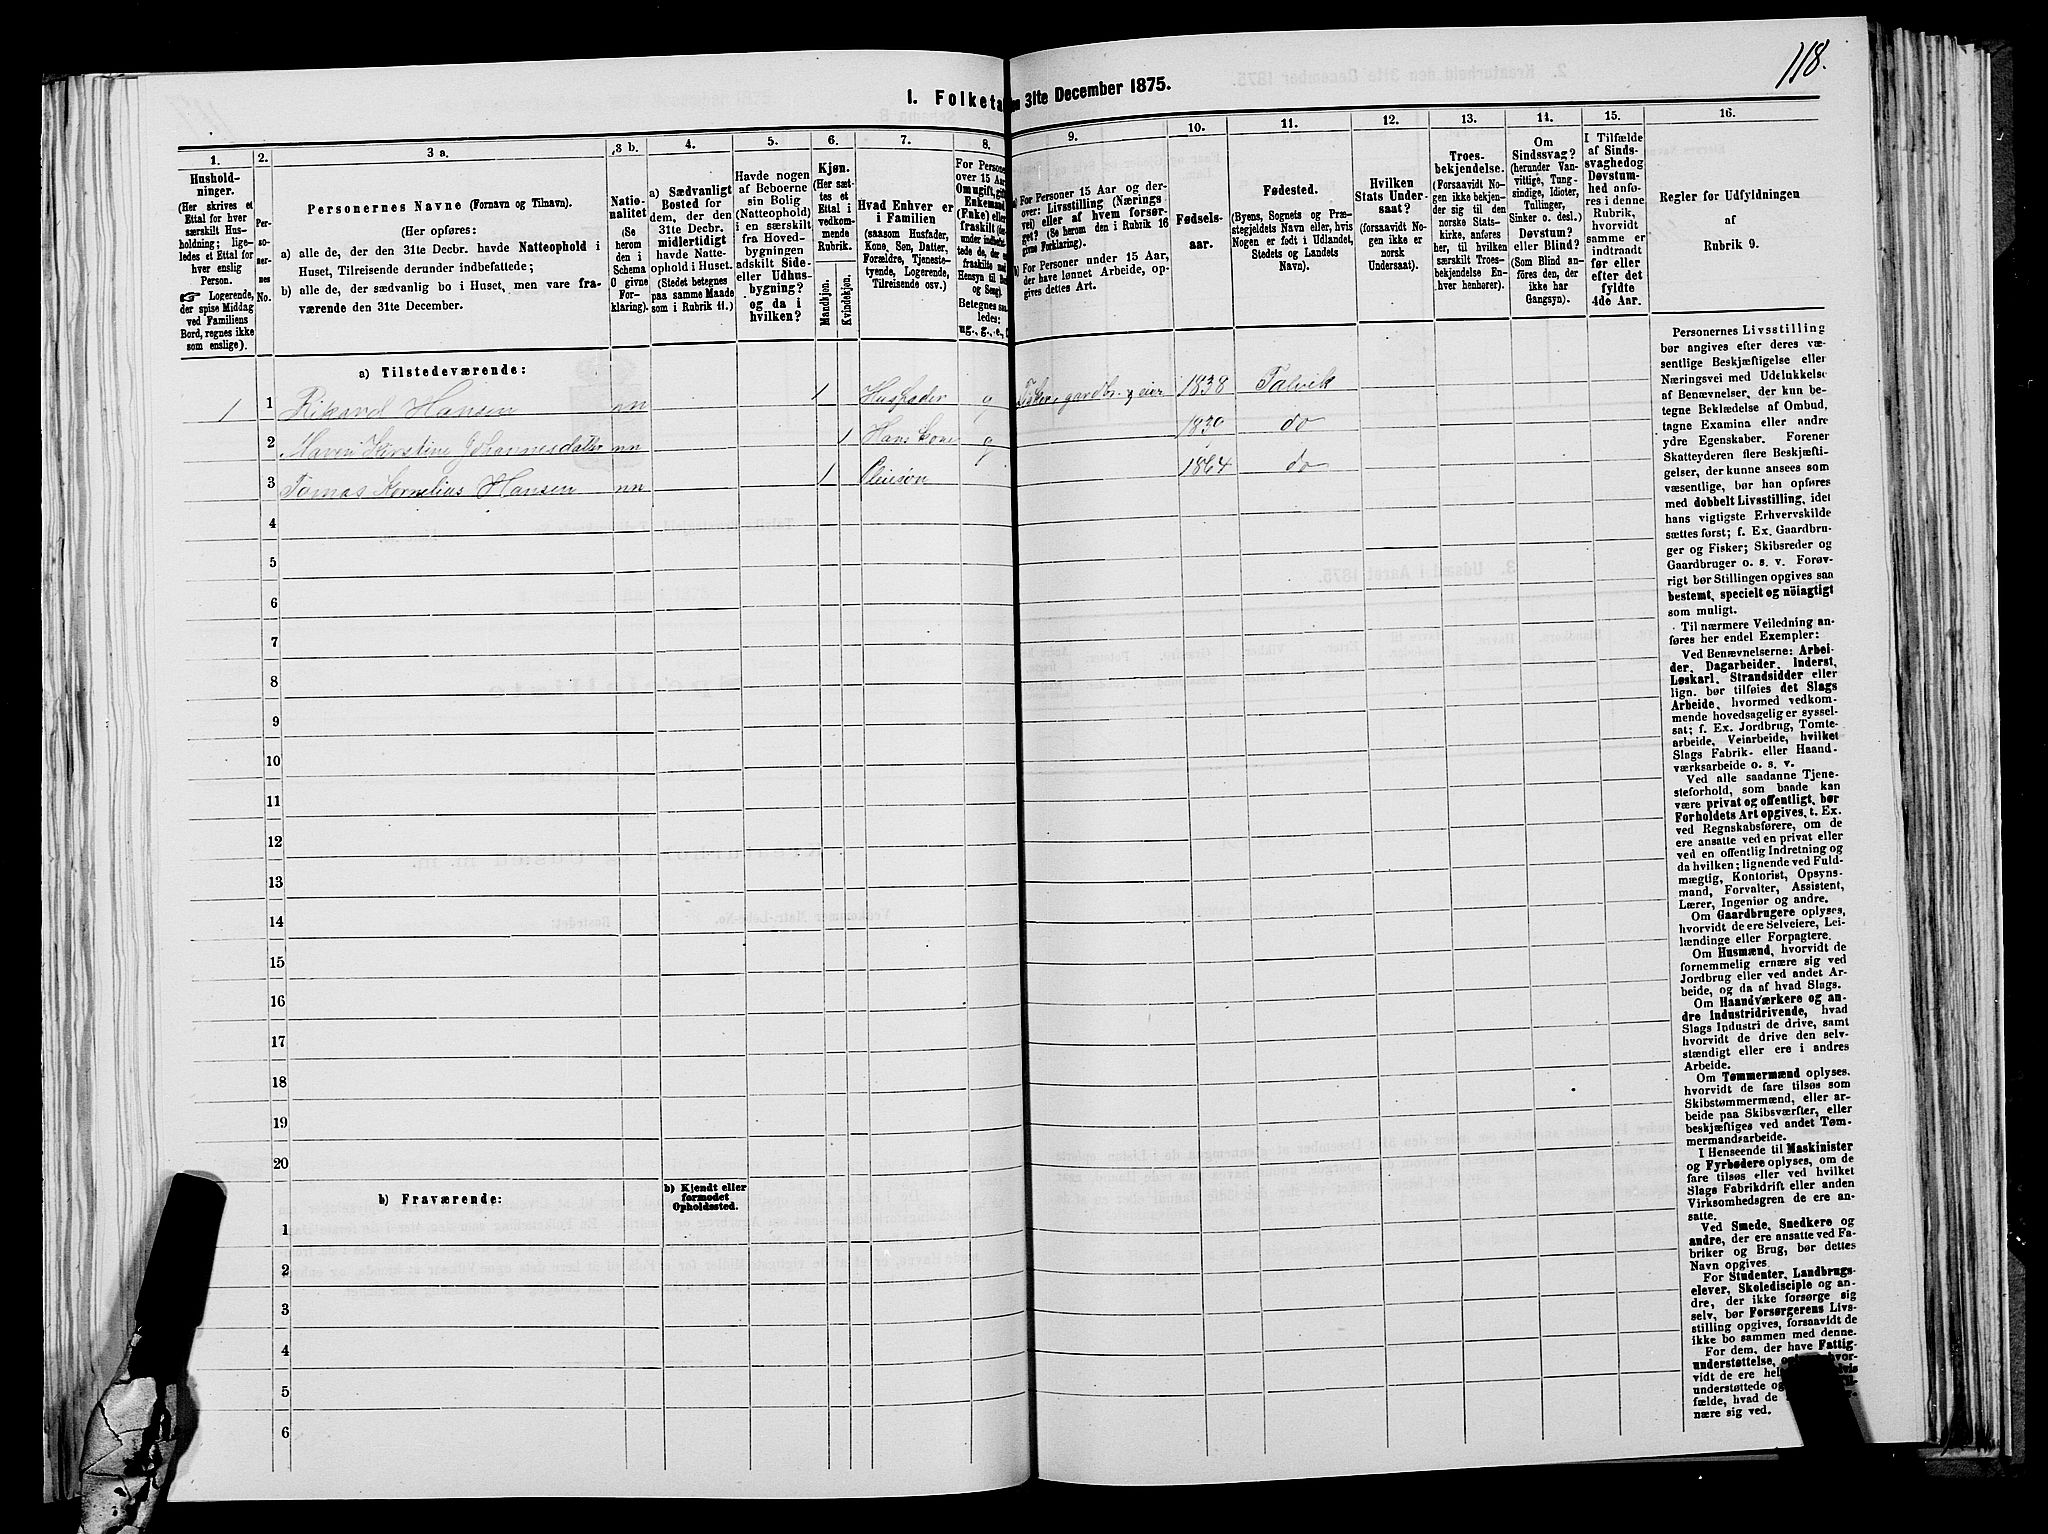 118.
I. Folketa
en 31te December 1875.
1.
2.
3 a.
3 b.
4.
5.
6.
7.
8.
9.
10.
11.
12.
13.
14.
15.
16.
Hushold-
ninger.
(Her skrives et
Ettal for hver
særskilt Hus-
holdning; lige-
ledes et Ettal for
hver enslig
Person.
Logerende,
der spise Middag
ved Familiens
Bord, regnes ikke
som enslige).
Per-
so-
ner-
nes
No.
Personernes Navne (Fornavn og Tilnavn).
(Her opføres:
a) alle de, der den 31te Decbr. havde Natteophold i
Huset, Tilreisende derunder indbefattede;
b) alle de, der sædvanlig bo i Huset, men vare fra-
værende den 31te December.
Natio-
nalitet
(Se
herom
den i
Schema
O givne
For-
klaring).
a) Sædvanligt
Bosted for
dem, der den
31te Decbr.
midlertidigt
havde Natte-
ophold i Huset.
(Stedet betegnes
paa samme Maade
som i Rubrik 11.)
Havde nogen
af Beboerne
sin Bolig
(Natteophold)
i en særskilt
fra Hoved-
bygningen
adskilt Side-
eller Udhus-
bygning?
og da i
hvilken?
Kjøn.
(Her sæt-
tes et
Ettal i
vedkom-
mende
Rubrik.
Mandkjøn.
Kvindekjøn.
Hvad Enhver er
i Familien
(saasom Husfader,
Kone, Søn, Datter,
Forældre, Tjeneste-
tyende, Logerende,
Tilreisende osv.)
For Personer
over 15 Aar
Om ugift, gift,
Enkemand
(Enke) eller
fraskilt
Betegnes saa-
ledes:
ug., g., e.,
a) For Personer 15 Aar og der-
over: Livsstilling (Nærings-
vei) eller af hvem forsør-
get? (Se herom den i Rubrik 16
givne Forklaring).
b) For Personer under 15 Aar,
der have lønnet Arbeide, op-
gives dettes Art.
Fødsels-
aar.
Fødested.
(Byens, Sognets og Præ-
stegjeldets Navn eller, hvis
Nogen er født i Udlandet,
Stedets og Landets
Navn).
Hvilken
Stats Under-
saat?
(forsaavidt No-
gen ikke er
norsk
Undersaat).
Troes-
bekjendelse.
(Forsaavidt No-
gen ikke bekjen-
der sig til den
norske Stats-
kirke, anføres
her, til hvilken
særskilt Troes-
bekjendelse En-
hver henhører).
Om
Sindssvag?
(herunder Van-
vittige, Tung-
sindige, Idioter,
Tullinger,
Sinker o. desl.)
Døvstum?
eller Blind?
(Som Blind an-
føres den, der
ikke har
Gangsyn).
I Tilfælde
af Sinds-
svaghed og
Døvstum-
hed anfø-
res i denne
Rubrik,
hvorvidt
samme er
indtraadt
før eller
efter det
fyldte
4de Aar.
Regler for Udfyldningen
af
Rubrik 9.
a) Tilstedeværende:
1 1 Rikard Hansen nn 1 Husfader g Fisker, gardbr. & eier 1838 Talvik
2 Maren Kirstine Johannesdatter nn 1 Hans Kone g 1839 do
3 Tomas Kornelius Hansen nn 1 Pleiesøn 1864 do
4
5
6
7
8
9
10
11
12
13
14
15
16
17
18
19
20
b) Fraværende:
b) Kjendt eller
formodet
Opholdssted.
1
2
3
4
5
6
Personernes Livsstilling
bør angives efter deres væ-
sentlige Beskjæftigelse eller
Næringsvei med Udelukkelse
af Benævnelser, der kun be-
tegne Beklædelse af Ombud,
tagne Examina eller andre
ydre Egenskaber. Forener
Skatteyderen flere Beskjæfti-
gelser, der kunne ansees som
væsentlige, bør han opføres
med dobbelt Livsstilling, idet
hans vigtigste Erhvervskilde
sættes først; f. Ex. Gaardbru-
ger og Fisker; Skibsreder og
Gaardbruger o. s. v. Forøv-
rigt bør Stillingen opgives saa
bestemt, specielt og nöiagtigt
som muligt.
Til nærmere Veiledning an-
føres her endel Exempler:
Ved Benævnelserne: Arbei-
der, Dagarbeider, Inderst,
Løskarl, Strandsidder eller
lign. bør tilføies det Slags
Arbeide, hvormed vedkom-
mende hovedsagelig er syssel-
sat; f. Ex. Jordbrug, Tomte-
arbeide, Veiarbeide, hvilket
Slags Fabrik- eller Haand-
værksarbeide o. s. v.
Ved alle saadanne Tjene-
steforhold, som baade kan
være privat og offentligt, bør
Forholdets Art opgives, t. Ex.
ved Regnskabsførere, om de
ere ansatte ved en privat eller
ved en offentlig Indretning og
da hvilken; lignende ved Fuld-
mægtig, Kontorist, Opsyns-
mand, Forvalter, Assistent,
Lærer, Ingeniør og andre.
Om Gaardbrugere oplyses,
hvorvidt de ere Selveiere, Lei-
lændinge eller Forpagtere.
Om Husmænd, hvorvidt de
fornemmelig ernære sig ved
Jordbrug eller ved andet Ar-
beide, og da af hvad Slags.
Om Haandværkere og an-
dre Industridrivende, hvad
Slags Industri de drive, samt
hvorvidt de drive den selv-
stændigt eller ere i andres
Arbeide.
Om Tømmermænd oplyses,
hvorvidt de fare tilsøs som
Skibstømmermænd, eller ar-
beide paa Skibsværfter, eller
beskjæftiges ved andet Tøm-
mermandsarbeide.
I Henseende til Maskinister
og Fyrbødere oplyses, om de
fare tilsøs eller ved hvilket
Slags Fabrikdrift eller anden
Virksomhedsgren de ere an-
satte.
Ved Smede, Snedkere og
andre, der ere ansatte ved Fa-
briker og Brug, bør dettes
Navn opgives.
For Studenter, Landbrugs-
elever, Skoledisciple og an-
dre, der ikke forsørge sig
selv, bør Forsørgerens Livs-
stilling opgives, forsaavidt de
ikke bo sammen med denne.
For dem, der have Fattig-
understøttelse,
vidt de ere
understøttede
fælde, hvad de
nære sig ved.